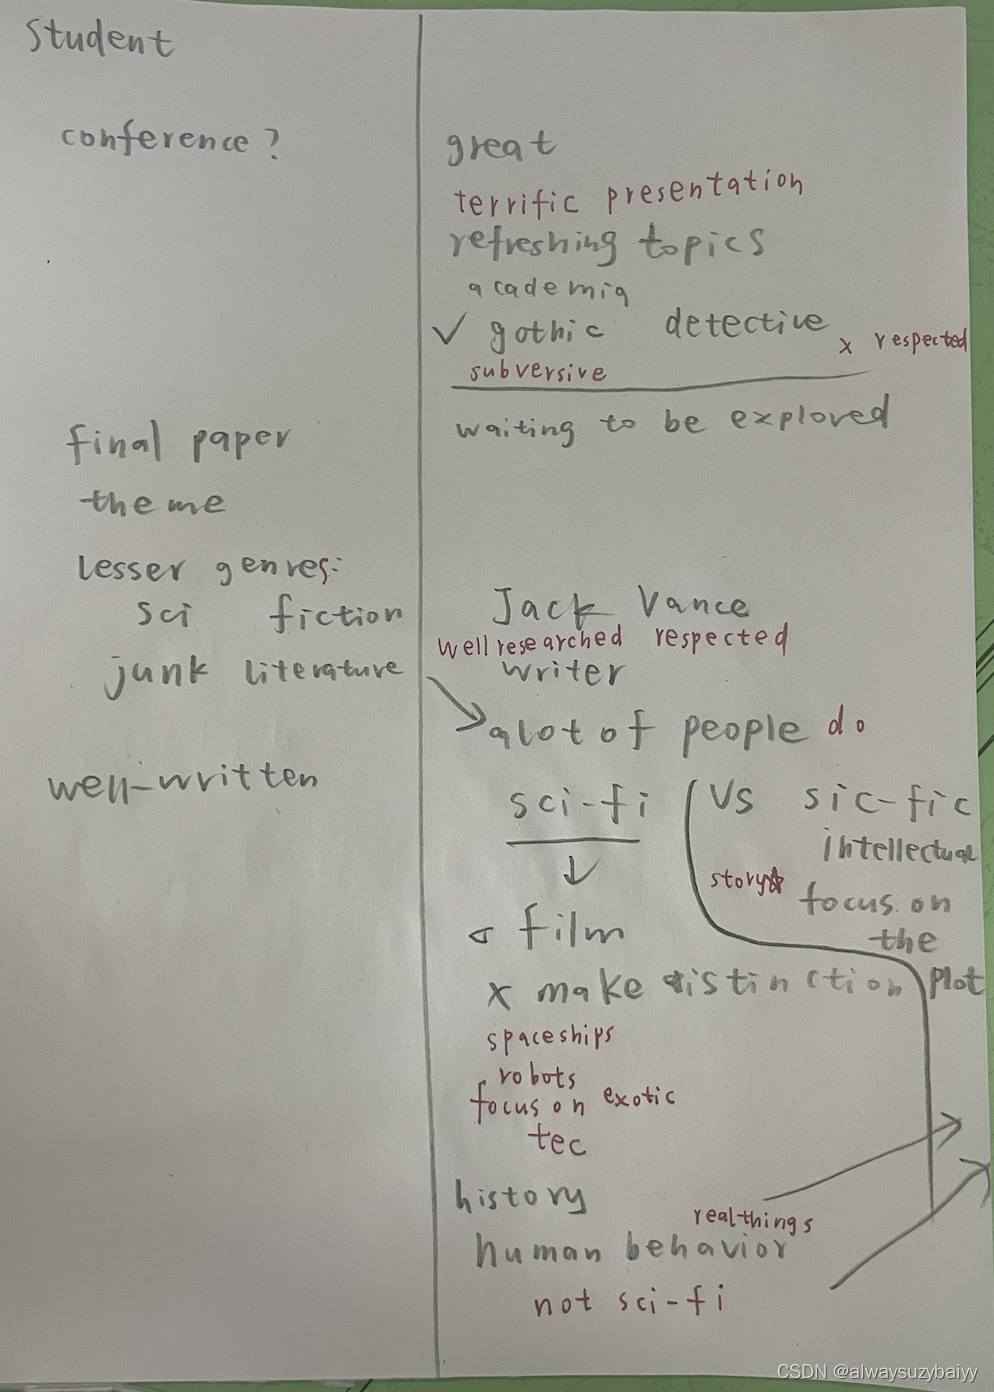 student
conference?
great
terrific presentation
refreshing topics
academia
✓ gothic detective x respected
subversive
final paper
waiting to be explored
theme
lesser genres:
sci fiction
Jack Vance
well researched respected
junk literature
writer
a lot of people do
well-written
sci-fi
vs sic-fic
intellectual
story
focus on
the
plot
film
x make distinction
spaceships
robots
focus on exotic
tec
history
real things
human behavior
not sci-fi
CSDN @alwaysuzybaiyy